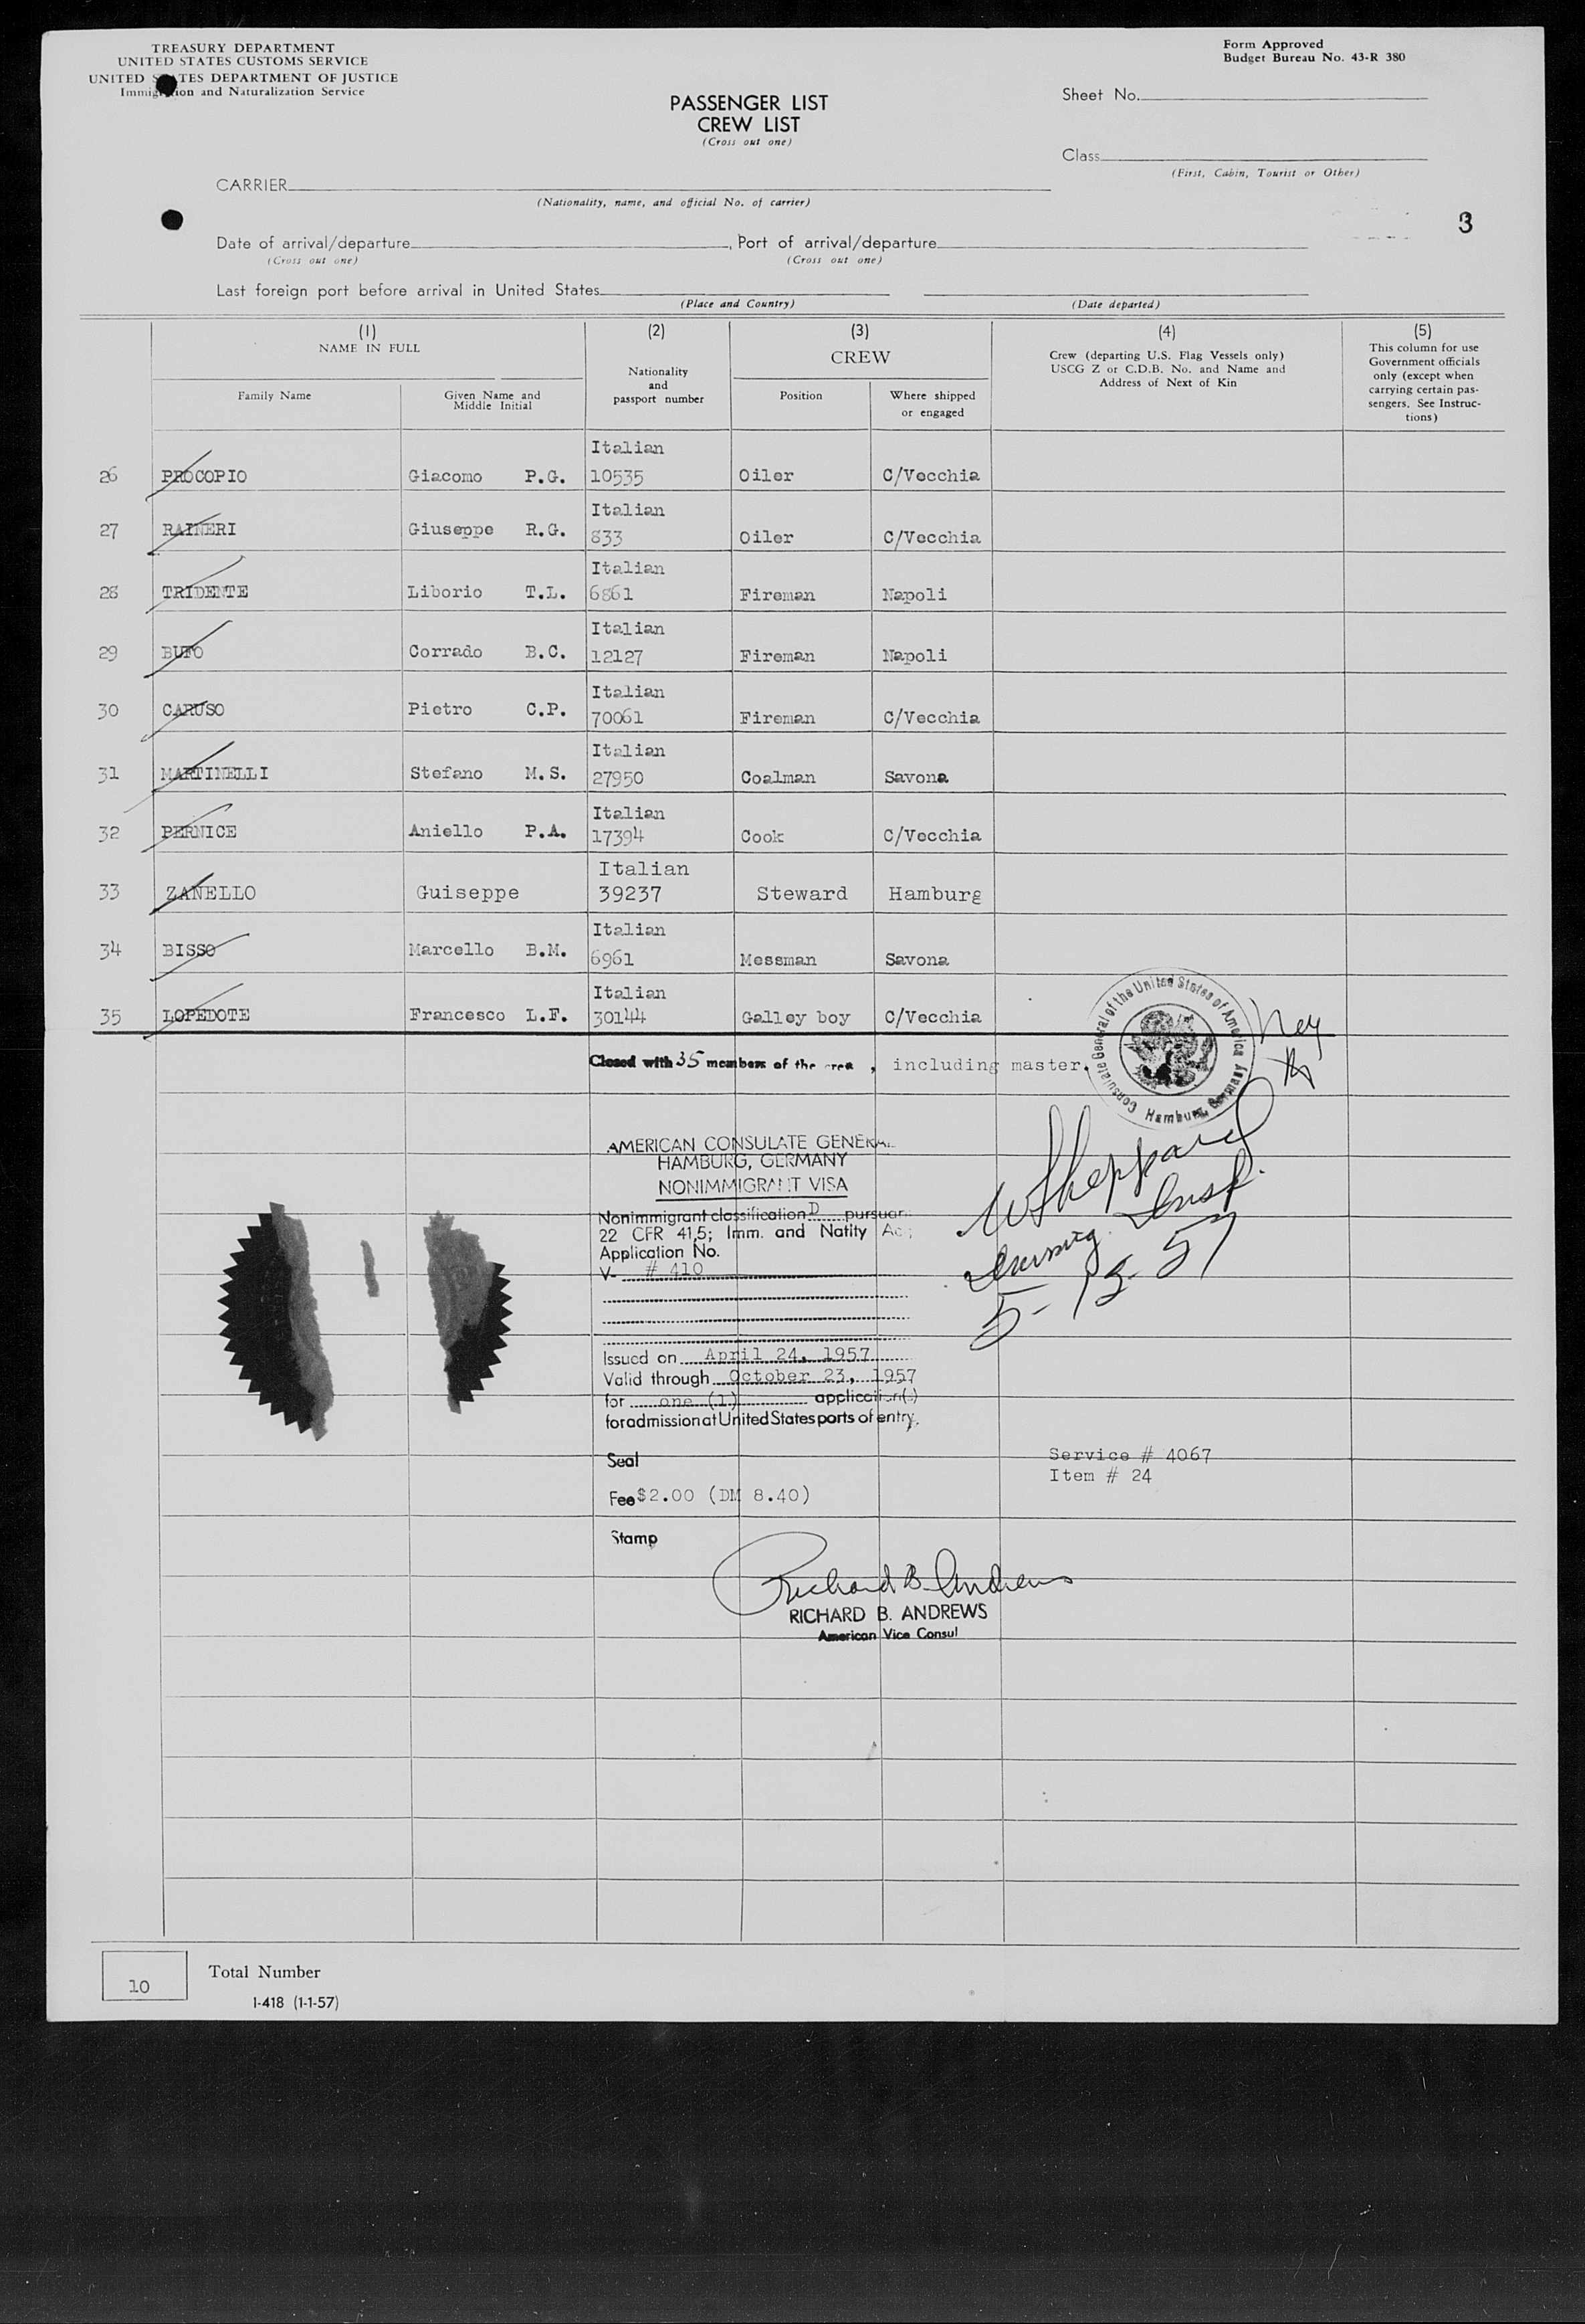 TREASURY DEPARTMENT
UNITED STATES CUSTOMS SERVICE
UNITED STATES DEPARTMENT OF JUSTICE
Immigration and Naturalization Service
Form Approved
Budget Bureau No. 43-R 380
PASSENGER LIST
CREW LIST
(Cross out one)
Sheet No.
Class
(First, Cabin, Tourist or Other)
CARRIER
(Nationality, name, and official No. of carrier)
3
Date of arrival/departure, Port of arrival/departure
(Cross out one) (Cross out one)
Last foreign port before arrival in United States
(Place and Country) (Date departed)
(1) NAME IN FULL
Family Name
Given Name and Middle Initial
(2)
Nationality and passport number
(3)
CREW
Position
Where shipped or engaged
(4)
Crew (departing U.S. Flag Vessels only)
USCG Z or C.D.B. No. and Name and
Address of Next of Kin
(5)
This column for use
Government officials
only (except when
carrying certain pas-
sengers. See Instruc-
tions)
26 PROCOPIO Giacomo P.G. Italian 10535 Oiler C/Vecchia
27 RAINERI Giuseppe R.G. Italian 833 Oiler C/Vecchia
28 TRIDENTE Liborio T.L. Italian 6861 Fireman Napoli
29 BUFO Corrado B.C. Italian 12127 Fireman Napoli
30 CARUSO Pietro C.P. Italian 70061 Fireman C/Vecchia
31 MARTINELLI Stefano M.S. Italian 27950 Coalman Savona
32 PERNICE Aniello P.A. Italian 17394 Cook C/Vecchia
33 ZANELLO Guiseppe Italian 39237 Steward Hamburg
34 BISSO Marcello B.M. Italian 6961 Messman Savona
35 LOPEDOTE Francesco L.F. Italian 30144 Galley boy C/Vecchia
Closed with 35 members of the crew, including master.
Consulate General of the United States of America
Hamburg, Germany
AMERICAN CONSULATE GENERAL
HAMBURG, GERMANY
NONIMMIGRANT VISA
Nonimmigrant classification D pursuan
22 CFR 41,5; Imm. and Natity Act
Application No.
V- # 410
W Sheppard
Immig. Insp.
5-13-57
Issued on April 24, 1957
Valid through October 23, 1957
for one (1) application(s)
for admission at United States ports of entry.
Seal
Service # 4067
Item # 24
Fee $2.00 (DM 8.40)
Stamp
Richard B. Andrews
RICHARD B. ANDREWS
American Vice Consul
10
Total Number
I-418 (1-1-57)